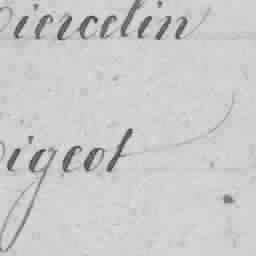 iercelin
igeot